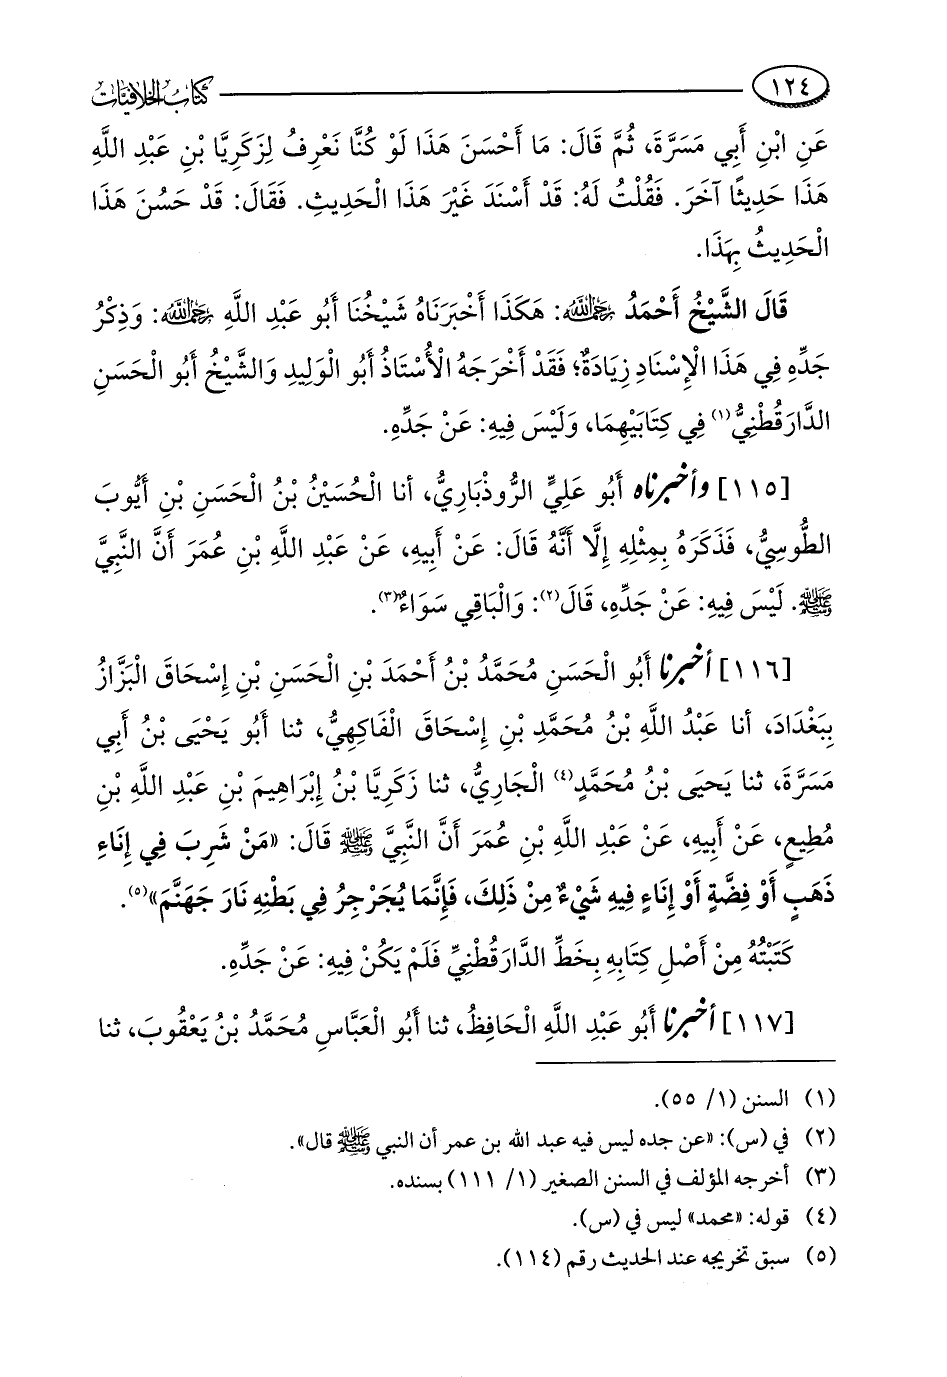 ١٢٤ كتاب الخلافيات
عَنِ ابْنِ أَبِي مَسَرَّةَ، ثُمَّ قَالَ: مَا أَحْسَنَ هَذَا لَوْ كُنَّا نَعْرِفُ لِزَكَرِيَّا بْنِ عَبْدِ اللَّهِ
هَذَا حَدِيثًا آخَرَ. فَقُلْتُ لَهُ: قَدْ أَسْنَدَ غَيْرَ هَذَا الْحَدِيثِ. فَقَالَ: قَدْ حَسُنَ هَذَا
الْحَدِيثُ بِهَذَا.
قَالَ الشَّيْخُ أَحْمَدُ رَحِمَهُ اللَّهُ: هَكَذَا أَخْبَرَنَاهُ شَيْخُنَا أَبُو عَبْدِ اللَّهِ رَحِمَهُ اللَّهُ: وَذِكْرُ
جَدِّهِ فِي هَذَا الْإِسْنَادِ زِيَادَةٌ؛ فَقَدْ أَخْرَجَهُ الْأُسْتَاذُ أَبُو الْوَلِيدِ وَالشَّيْخُ أَبُو الْحَسَنِ
الدَّارَقُطْنِيُّ(١) فِي كِتَابَيْهِمَا، وَلَيْسَ فِيهِ: عَنْ جَدِّهِ.
[١١٥] وأخبرناه أَبُو عَلِيٍّ الرُّوذْبَارِيُّ، أنا الْحُسَيْنُ بْنُ الْحَسَنِ بْنِ أَيُّوبَ
الطُّوسِيُّ، فَذَكَرَهُ بِمِثْلِهِ إِلَّا أَنَّهُ قَالَ: عَنْ أَبِيهِ، عَنْ عَبْدِ اللَّهِ بْنِ عُمَرَ أَنَّ النَّبِيَّ
ﷺ. لَيْسَ فِيهِ: عَنْ جَدِّهِ، قَالَ(٢): وَالْبَاقِي سَوَاءٌ(٣).
[١١٦] أخبرنا أَبُو الْحَسَنِ مُحَمَّدُ بْنُ أَحْمَدَ بْنِ الْحَسَنِ بْنِ إِسْحَاقَ الْبَزَّازُ
بِبَغْدَادَ، أنا عَبْدُ اللَّهِ بْنُ مُحَمَّدِ بْنِ إِسْحَاقَ الْفَاكِهِيُّ، ثنا أَبُو يَحْيَى بْنُ أَبِي
مَسَرَّةَ، ثنا يَحيَى بْنُ مُحَمَّدٍ(٤) الْجَارِيُّ، ثنا زَكَرِيَّا بْنُ إِبْرَاهِيمَ بْنِ عَبْدِ اللَّهِ بْنِ
مُطِيعٍ، عَنْ أَبِيهِ، عَنْ عَبْدِ اللَّهِ بْنِ عُمَرَ أَنَّ النَّبِيَّ ﷺ قَالَ: «مَنْ شَرِبَ فِي إِنَاءِ
ذَهَبٍ أَوْ فِضَّةٍ أَوْ إِنَاءٍ فِيهِ شَيْءٌ مِنْ ذَلِكَ، فَإِنَّمَا يُجَرْجِرُ فِي بَطْنِهِ نَارَ جَهَنَّمَ»(٥).
كَتَبْتُهُ مِنْ أَصْلِ كِتَابِهِ بِخَطِّ الدَّارَقُطْنِيِّ فَلَمْ يَكُنْ فِيهِ: عَنْ جَدِّهِ.
[١١٧] أخبرنا أَبُو عَبْدِ اللَّهِ الْحَافِظُ، ثنا أَبُو الْعَبَّاسِ مُحَمَّدُ بْنُ يَعْقُوبَ، ثنا
(١) السنن (١/ ٥٥).
(٢) في (س): «عن جده ليس فيه عبد الله بن عمر أن النبي ﷺ قال».
(٣) أخرجه المؤلف في السنن الصغير (١/ ١١١) بسنده.
(٤) قوله: «محمد» ليس في (س).
(٥) سبق تخريجه عند الحديث رقم (١١٤).